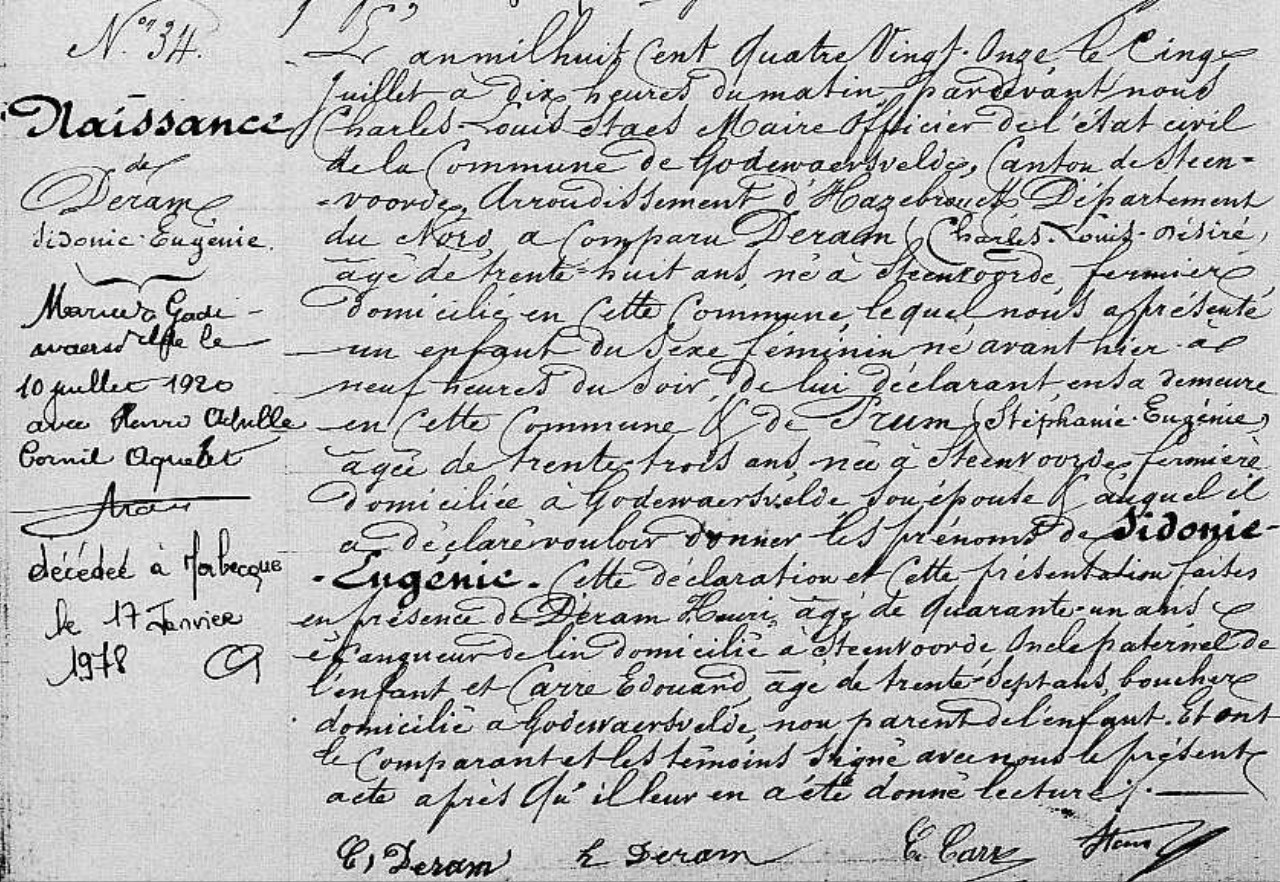 N.° 34.
Naissance
de
Deram
Sidonie-Eugénie.
Mariée à Gode-
waersvelde le
10 juillet 1920
avec Henri Achille
Cornil Aquelet
Staes
décédée à Morbecque
le 17 Janvier
1978
L'an mil huit Cent Quatre Vingt-Onze le Cinq
Juillet à dix heures du matin pardevant nous
Charles-Louis Staes Maire Officier de l'état civil
de la Commune de Godewaersvelde, Canton de Steen-
-voorde, Arrondissement d'Hazebrouck Département
du Nord, a Comparu Deram (Charles-Louis-Désiré)
âgé de trente-huit ans, né à Steenvoorde, fermier
domicilié en Cette Commune, lequel nous a présenté
un enfant du Sexe féminin né avant hier à
neuf heures du soir, de lui déclarant, en sa demeure
en Cette Commune & de Prum (Stéphanie-Eugénie)
âgée de trente-trois ans, née à Steenvoorde, fermière
domiciliée à Godewaersvelde, son épouse & auquel il
a déclaré vouloir donner les prénoms de Sidonie-
-Eugénie. Cette déclaration et Cette présentation faites
en présence de Deram Henri, âgé de Quarante-un ans
écangueur de lin domicilié à Steenvoorde Oncle paternel de
l'enfant et Carre Edouard, âgé de trente-Sept ans, boucher
domicilié à Godewaersvelde, non parent de l'enfant. Et ont
le Comparant et les témoins Signé avec nous le présent
acte après Qu'il leur en a été donné lecture.
C, Deram h Deram E. Carre Staes